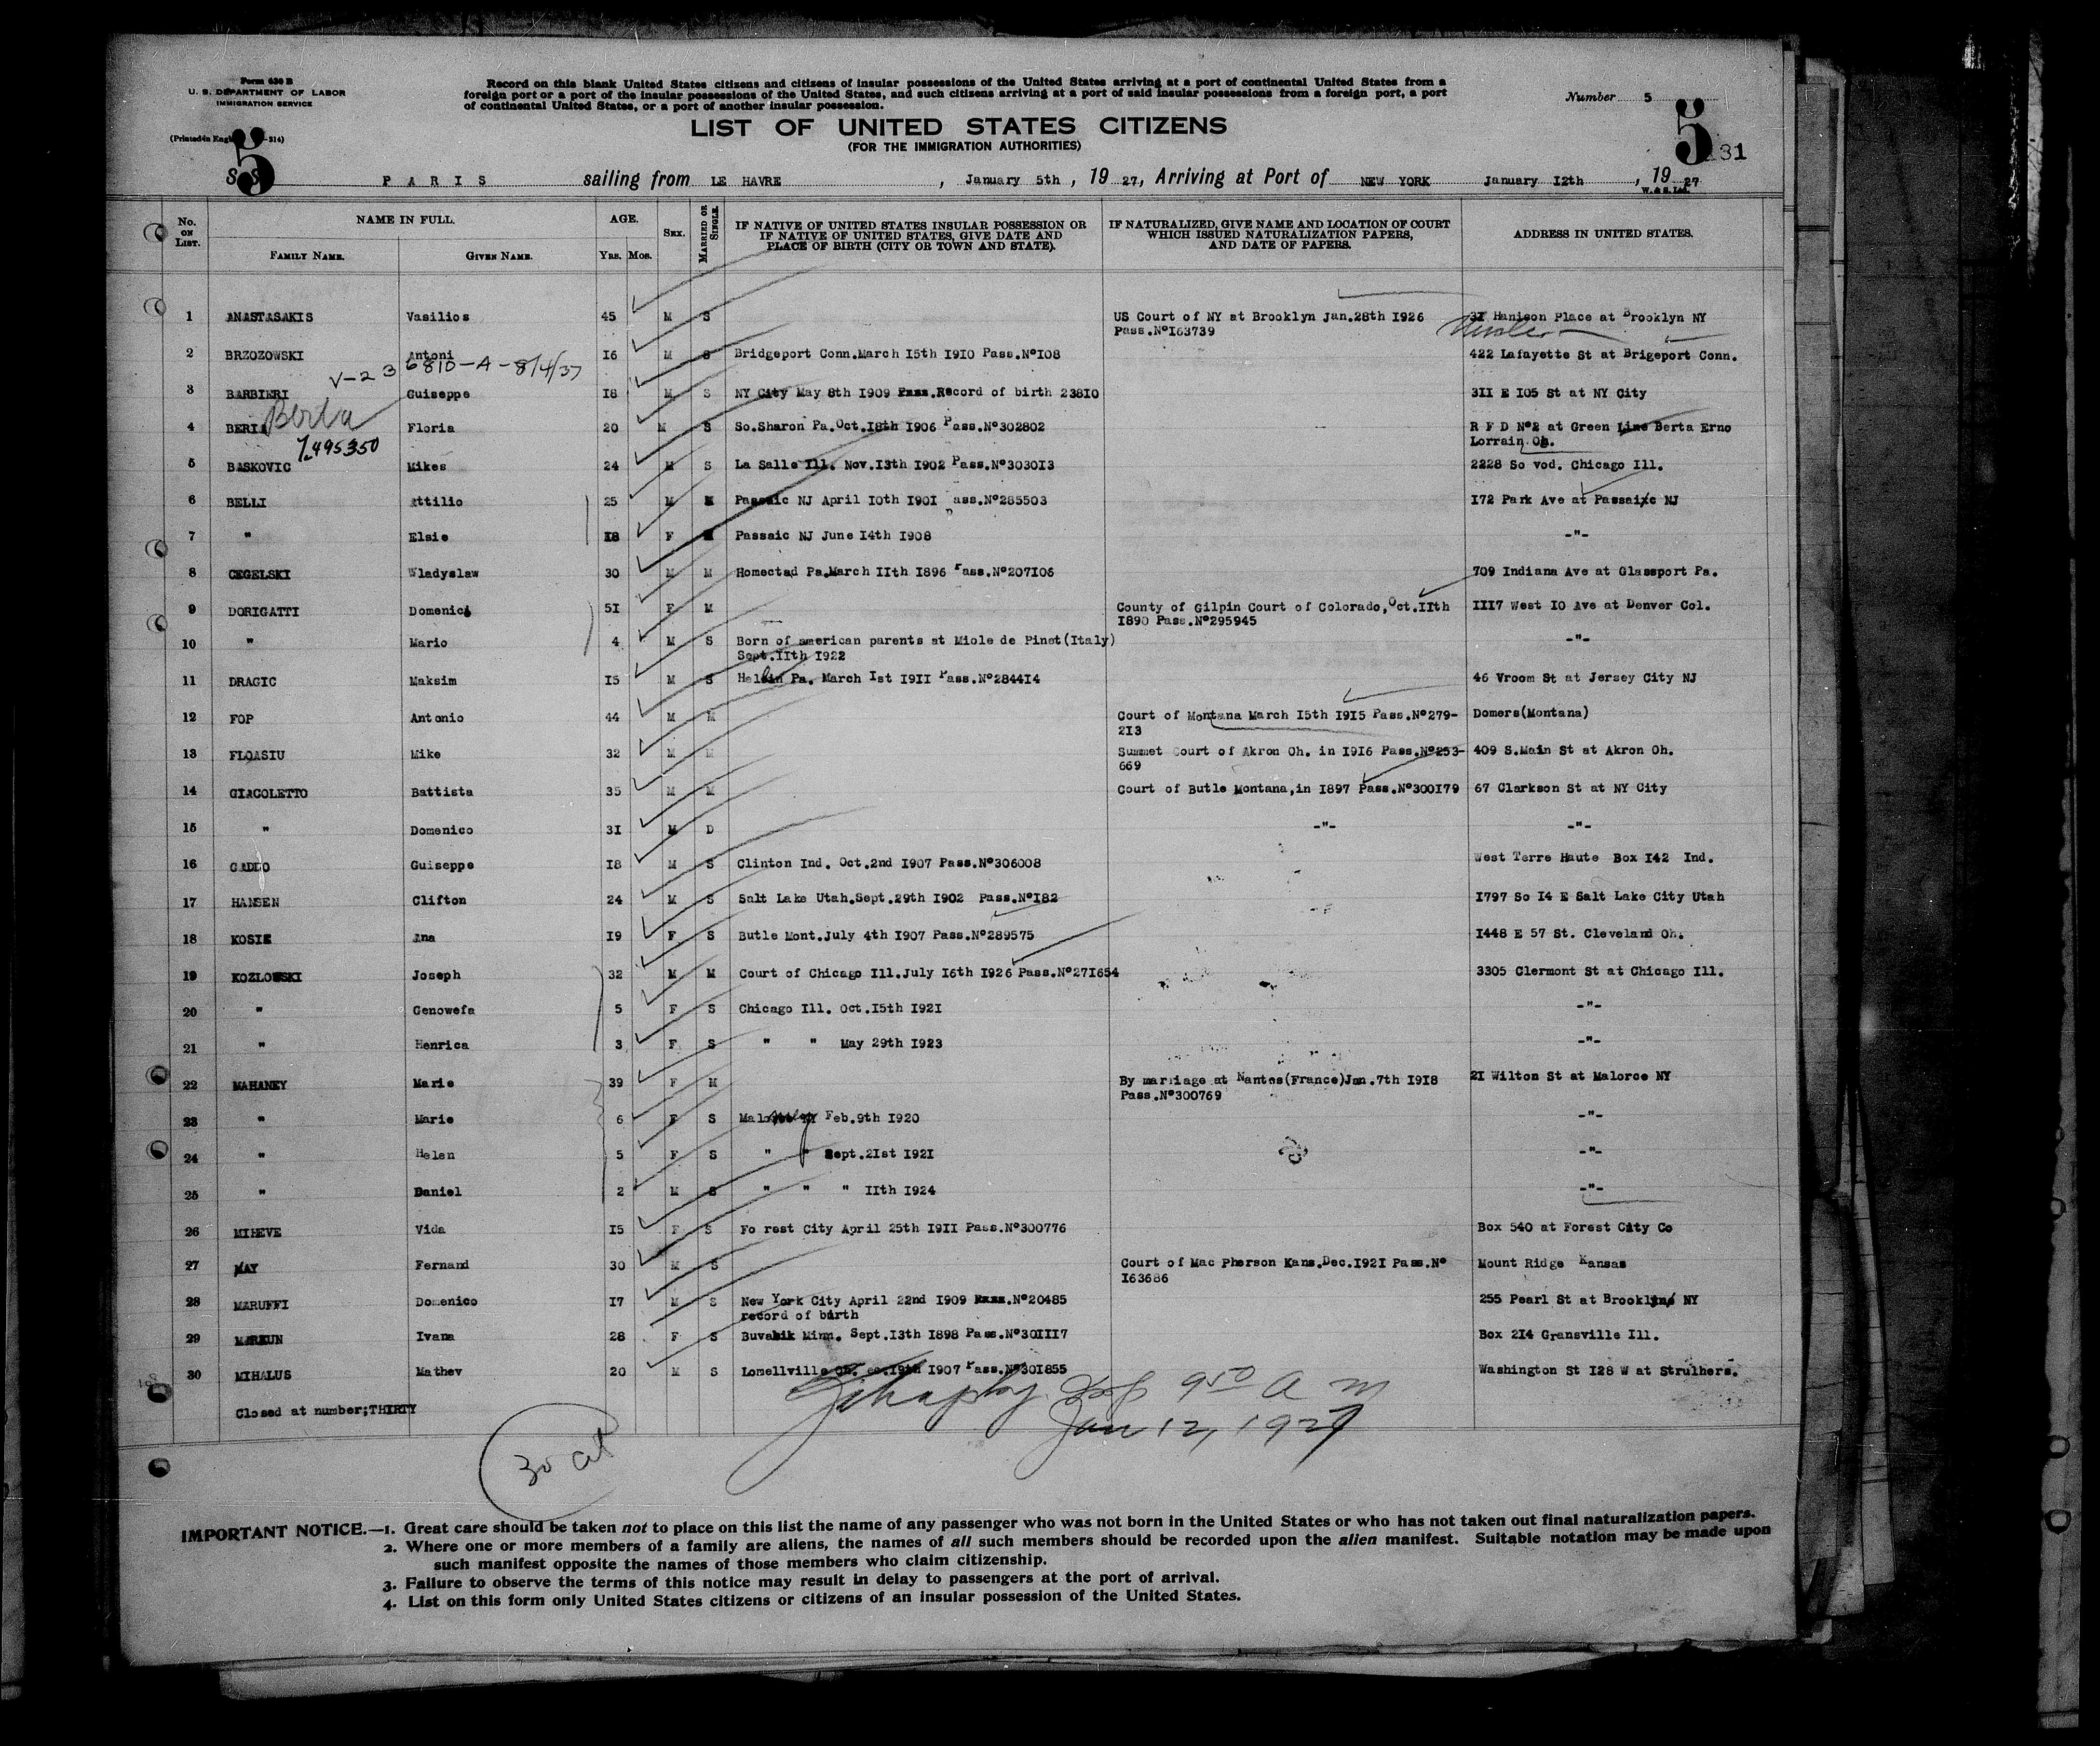 Form 630 B
U. S. DEPARTMENT OF LABOR
IMMIGRATION SERVICE
Record on this blank United States citizens and citizens of insular possessions of the United States arriving at a port of continental United States from a
foreign port or a port of the insular possessions of the United States, and such citizens arriving at a port of said insular possessions from a foreign port, a port
of continental United States, or a port of another insular possession.
Number 5
5
LIST OF UNITED STATES CITIZENS
(FOR THE IMMIGRATION AUTHORITIES)
5
131
S.S. PARIS sailing from LE HAVRE, January 5th, 1927, Arriving at Port of NEW YORK January I2th, 1927
No. ON LIST. NAME IN FULL. AGE. SEX. MARRIED OR SINGLE. IF NATIVE OF UNITED STATES INSULAR POSSESSION OR IF NATIVE OF UNITED STATES, GIVE DATE AND PLACE OF BIRTH (CITY OR TOWN AND STATE). IF NATURALIZED, GIVE NAME AND LOCATION OF COURT WHICH ISSUED NATURALIZATION PAPERS, AND DATE OF PAPERS. ADDRESS IN UNITED STATES.
FAMILY NAME. GIVEN NAME. YRS. MOS.
1 ANASTASAKIS Vasilios 45 M S US Court of NY at Brooklyn Jan.28th I926 3I Hanison Place at Brooklyn NY
Pass.NºI63739
2 BRZOZOWSKI Antoni I6 M S Bridgeport Conn.March I5th I9I0 Pass.NºI08 422 Lafayette St at Brigeport Conn.
V-23 6810-A-8/4/37
3 BARBIERI Guiseppe I8 M S NY City May 8th I909 Pass.Record of birth 238I0 3II E I05 St at NY City
Berta
4 BERIA Floria 20 M S So.Sharon Pa.Oct.I8th I906 Pass.Nº302802 R F D Nº2 at Green Line Berta Erno
Lorrain Oh.
495350
5 BASKOVIC Mikes 24 M S La Salle Ill. Nov.I3th I902 Pass.Nº3030I3 2228 So vod. Chicago Ill.
6 BELLI Attilio 25 M M Passaic NJ April I0th I90I ass.Nº285503 I72 Park Ave at Passaixc NJ
7 " Elsie I8 F M Passaic NJ June I4th I908 -"-
8 CEGELSKI Wladyslaw 30 M M Homectad Pa.March IIth I896 Pass.Nº207I06 709 Indiana Ave at Glassport Pa.
9 DORIGATTI Domenici 5I F M County of Gilpin Court of Colorado,Oct.IIth III7 West I0 Ave at Denver Col.
I890 Pass.Nº295945
10 " Mario 4 M S Born of american parents at Miole de Pinet(Italy) -"-
Sept.IIth I922
11 DRAGIC Maksim I5 M S Pa. March Ist I9II Pass.Nº2844I4 46 Vroom St at Jersey City NJ
12 FOP Antonio 44 M M Court of Montana March I5th I9I5 Pass.Nº279- Domers(Montana)
2I3
13 FLOASIU Mike 32 M M Summet Court of Akron Oh. in I9I6 Pass.Nº253- 409 S.Main St at Akron Oh.
669
14 GIACOLETTO Battista 35 M M Court of Butle Montana,in I897 Pass.Nº300I79 67 Clarkson St at NY City
15 " Domenico 3I M D -"- -"-
16 GADDO Guiseppe I8 M S Clinton Ind. Oct.2nd I907 Pass.Nº306008 West Terre Haute Box I42 Ind.
17 HANSEN Clifton 24 M S Salt Lake Utah.Sept.29th I902 Pass.NºI82 I797 So I4 E Salt Lake City Utah
18 KOSIE Ana I9 F S Butle Mont.July 4th I907 Pass.Nº289575 I448 E 57 St. Cleveland Oh.
19 KOZLOWSKI Joseph 32 M M Court of Chicago Ill.July I6th I926 Pass.Nº27I654 3305 Clermont St at Chicago Ill.
20 " Genowefa 5 F S Chicago Ill. Oct.I5th I92I -"-
21 " Henrica 3 F S " " May 29th I923 -"-
22 MAHANEY Marie 39 F M By marriage at Nantes(France)Jan.7th I9I8 2I Wilton St at Malorce NY
Pass.Nº300769
23 " Marie 6 F S NY Feb.9th I920 -"-
24 " Helen 5 F S " " Sept.2Ist I92I -"-
25 " Daniel 2 M S " " " IIth I924 -"-
26 MIHEVE Vida I5 F S Fo rest City April 25th I9II Pass.Nº300776 Box 540 at Forest City Co
27 MAY Fernand 30 M S Court of Mac Pherson Kans.Dec.I92I Pass.Nº Mount Ridge Kansas
I63686
28 MARUFFI Domenico I7 M S New York City April 22nd I909 Pass.Nº20485 255 Pearl St at Brooklyn NY
record of birth
29 MARKUN Ivana 28 F S Buvahik Minn. Sept.I3th I898 Pass.Nº30III7 Box 2I4 Gransville Ill.
30 MIHALUS Mathev 20 M S Lomellville Oh. ec.I9th I907 Pass.Nº30I855 Washington St I28 W at Strulhers.
Closed at number;THIRTY
9 50 A M
Jan 12, 1927
30
IMPORTANT NOTICE.—1. Great care should be taken not to place on this list the name of any passenger who was not born in the United States or who has not taken out final naturalization papers.
2. Where one or more members of a family are aliens, the names of all such members should be recorded upon the alien manifest. Suitable notation may be made upon
such manifest opposite the names of those members who claim citizenship.
3. Failure to observe the terms of this notice may result in delay to passengers at the port of arrival.
4. List on this form only United States citizens or citizens of an insular possession of the United States.